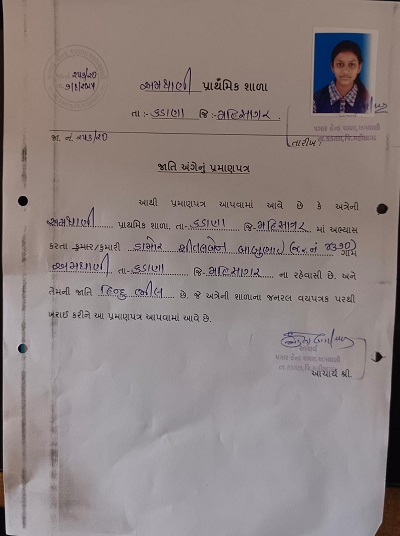 અમથાણી પ્રાથમિક શાળા
તા :- કડાણા જિ :- મહિસાગર
જા. નં. ૨૫૩/૨૦
તારીખ
જાતિ અંગેનું પ્રમાણપત્ર
આથી પ્રમાણપત્ર આપવામાં આવે છે કે અત્રેની
અમથાણી પ્રાથમિક શાળા, તા- કડાણા જિ- મહિસાગર માં અભ્યાસ
કરતા કુમાર/કુમારી ડામોર શીતલબેન બાબુભાઈ (જ.ર.નં ૪૩૭૦) ગામ
અમથાણી તા- કડાણા જિ- મહિસાગર ના રહેવાસી છે. અને
તેમની જાતિ હિન્દુ ભીલ છે. જે અત્રેની શાળાના જનરલ વયપત્રક પરથી
ખરાઈ કરીને આ પ્રમાણપત્ર આપવામાં આવે છે.
આચાર્ય
આચાર્ય શ્રી.